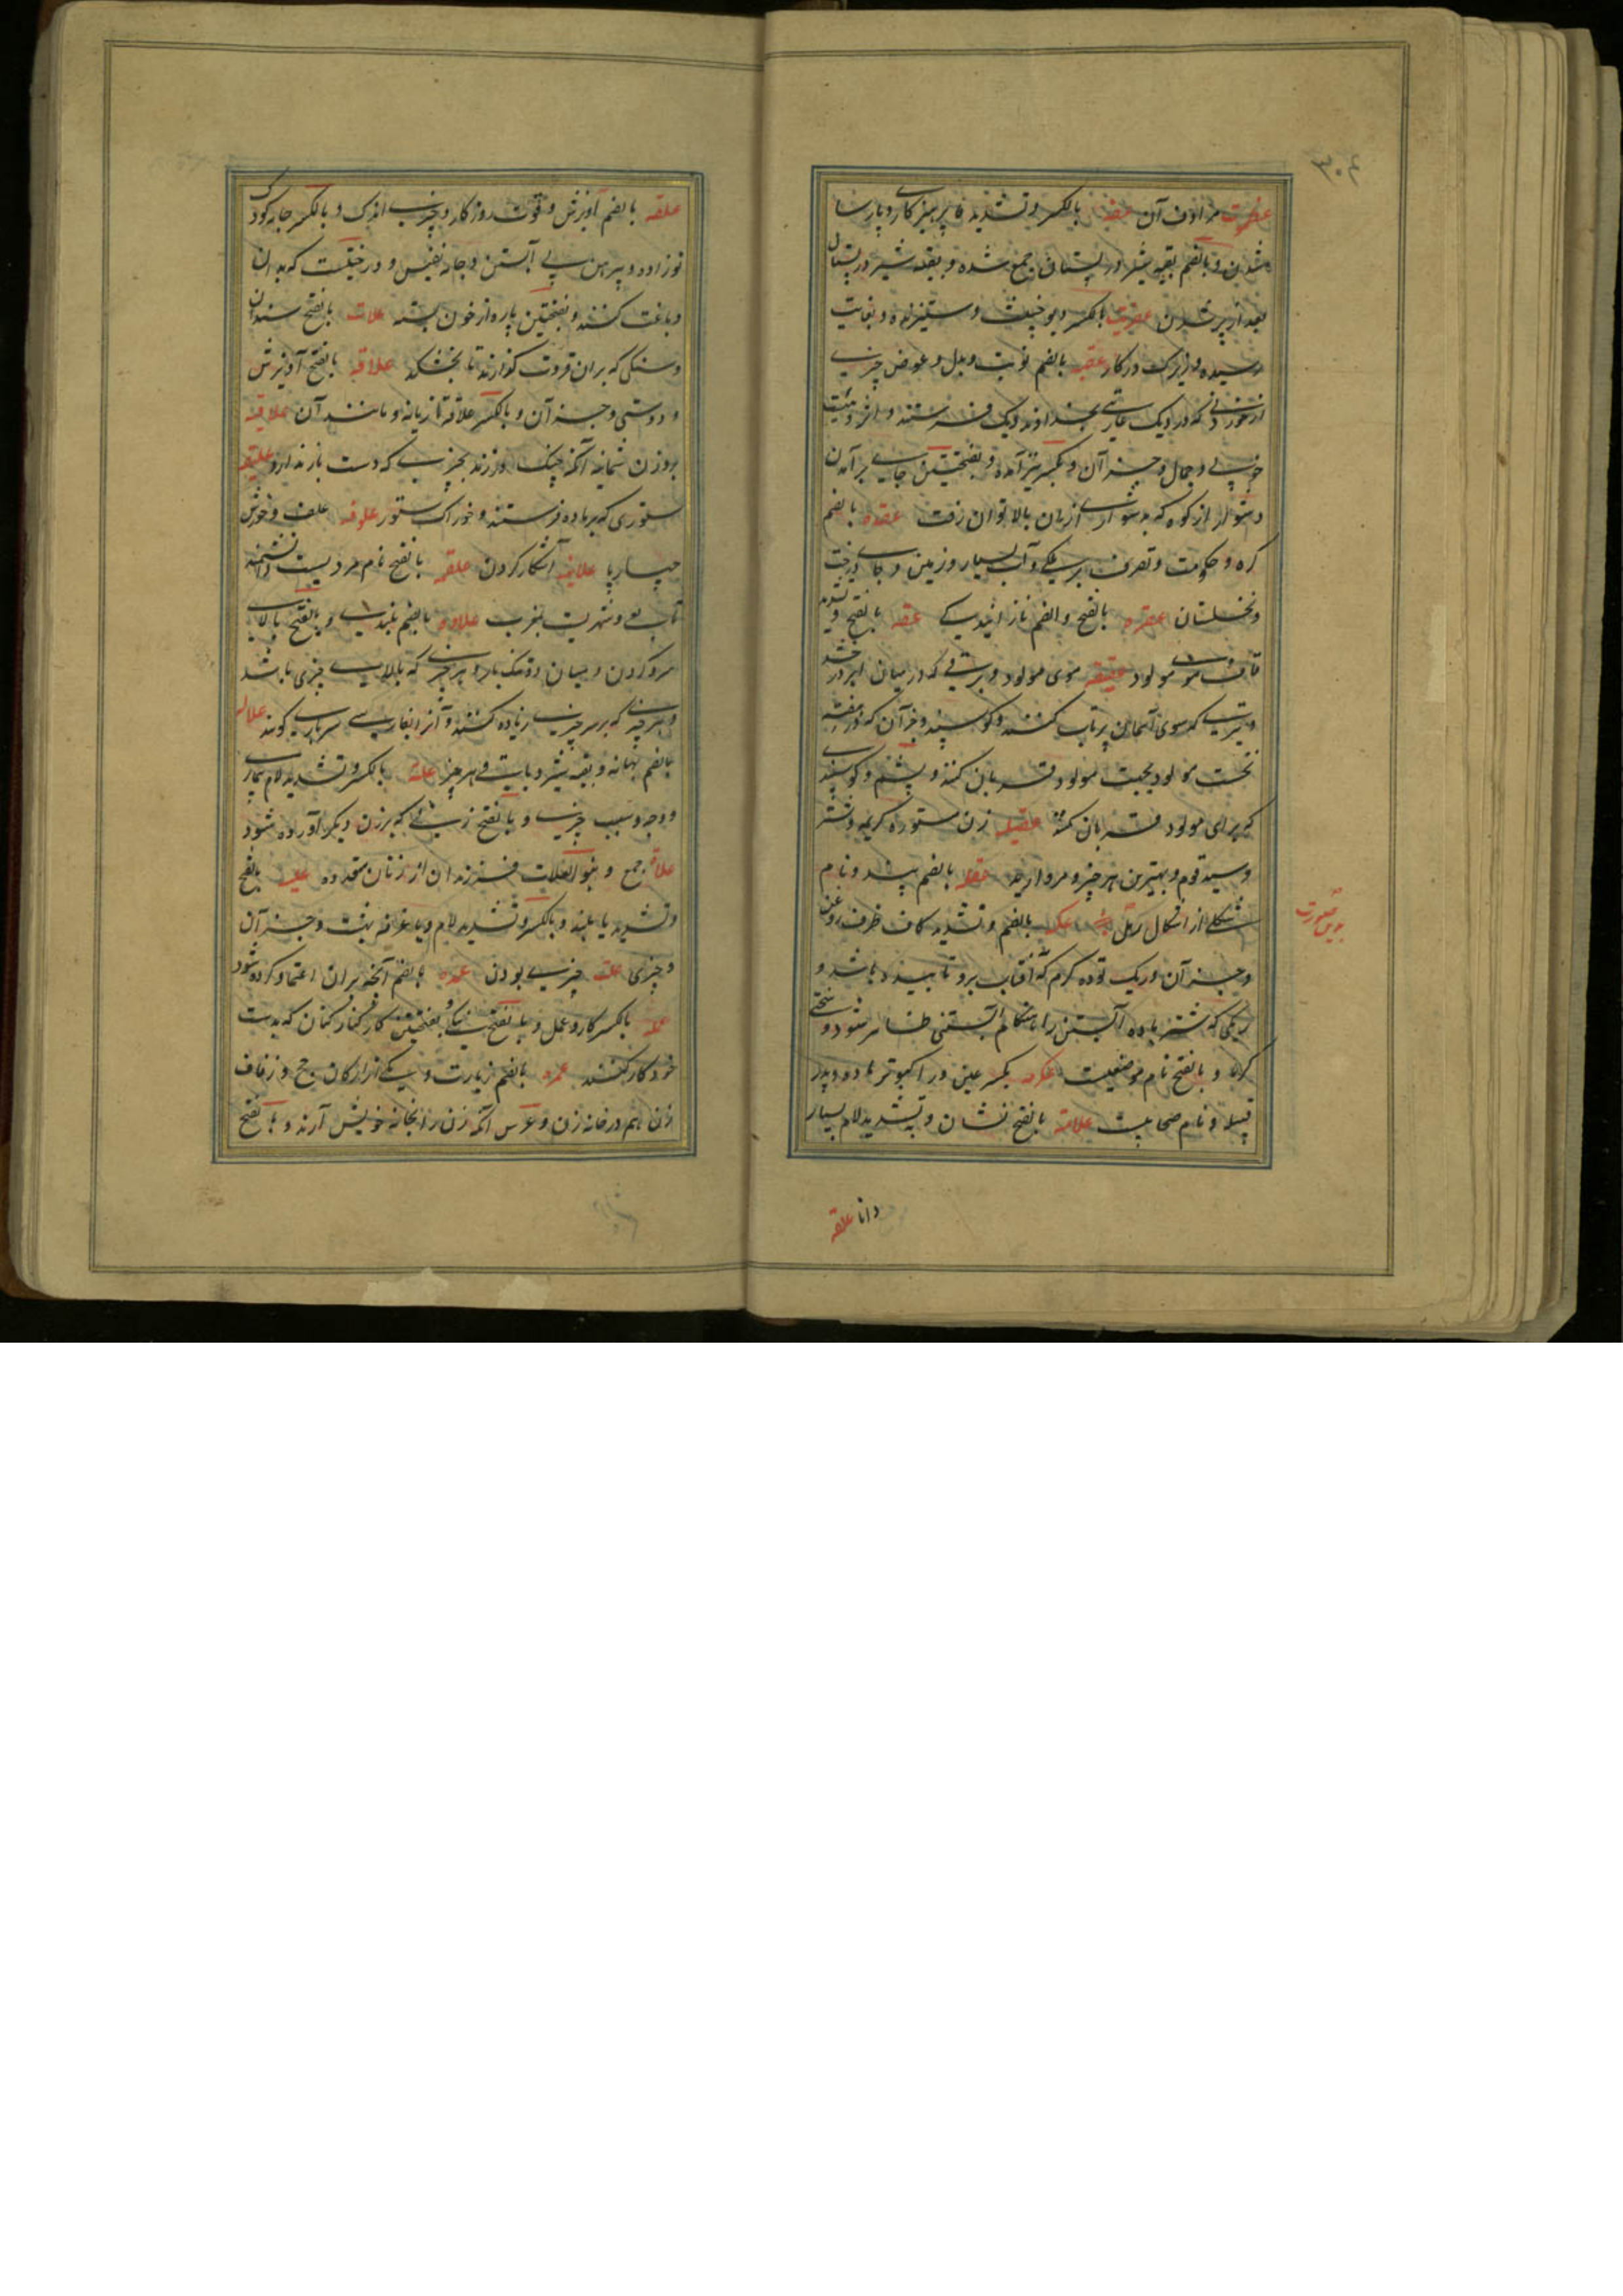 ۳۰۴
مرادف آن عفه بالکسر و تشدید فا پرهیزکاری و پارسا
شدن و بالضم بقیه شیر در پستان جمع شده و بقیه شیر در پستان
بعد از پر شدن عفریت بالکسر دیو خبیث و ستیزنده و بغایت
رسیده و زیرک در کار عقبه بالضم نوبت و بدل و عوض چیزی
از خوردنی که در دیک عاریتی بخداوند دیک فرستند و اثر و هیئت
خوبی و جمال و جز آن و بکسر نیز آمده و بفتحتین جای برآمدن
دشوار از کوه که بدشواری از آن بالا توان رفت عقده بالضم
کره و حکومت و تصرف بر ملکی و آب بسیار و زمین و جای درخت
و نخلستان عقره بالفتح والضم نازایندگی عقه بالفتح و تشدید
قاف موی مولود عقیقه موی مولود و برقی که در میان ابر درخشد
و تیری که سوی آسمان پرتاب کنند و کوسپند و جز آن که در هفته
نخست مولود بجهت مولود قربان کنند و پشم و کوسپندی
که برای مولود قربان کنند عقیله زن مستوره کریمه و شتر
و سید قوم و بهترین هر چیز و مروارید عقله بالضم بند و نام
شکلی از اشکال رمل عکه بالضم و تشدید کاف ظرف روغن
بدین صورت
و جز آن و ریک توده کرم که آفتاب برو تابیده باشد و
رنگی که شتر ماده آبستن را هنگام آبستنی ظاهر شود و سختی
کرما و بالفتح نام موضعیست عکرمه بکسر عین و را کبوتر ماده و پدر
قبیله و نام صحابیست علامة بالفتح نشان و بتشدید لام بسیار
دانا علقه
علقه بالضم آویزش و قوت روزکار و چیزی اندک و بالکسر جامه کودک
نوزاده و پیراهن بی آستین و جامه نفیس و درختیست که بدان
دباغت کنند و بفتحتین پاره از خون بسته علات بالفتح سندان
و سنگی که بران قروت کذارند تا بخشکد علاقه بالفتح آویزش
و دوستی و جز آن و بالکسر علاقه تازیانه و مانند آن علاقیه
بروزن ثمانیه آنکه چنک در زند بچیزی که دست بازندارد علیقه
ستوری که بر باده فرستند و خوراک ستور علوفه علف و خورش
چهارپا علانیه آشکار کردن علقمه بالفتح نام مردیست دانشمند
تابعی و شهریست بمغرب علاوه بالضم بلندی و بالفتح بالای
سر و کردن و میان دو تنک بار و هر چیزی که بالای چیزی باشد
و هر چیزی که بر سر چیزی زیاده کنند و آنرا بفارسی سرباری کویند علاله
بالضم بهانه و بقیه شیر و باقی هر چیز علة بالکسر و تشدید لام بیماری
و وجه و سبب چیزی و بالفتح زنی که بر زن دیکر آورده شود
علات جمع و بنو العلات فرزندان از زنان متعدده علیه بالفتح
و تشدید یا بلند و بالکسر و تشدید لام و یا غرفه بیت و جز آن
و چیزی علت چیزی بودن عمده بالضم آنچه بران اعتماد کرده شود
عمله بالکسر کار و عمل و بالفتح و بفتحتین کارکنان که بدست
خود کار کنند عمره بالضم زیارت و یکی از ارکان حج و زفاف
زن هم در خانه زن و عرس آنکه زن را بخانه خویش آرند و بالفتح